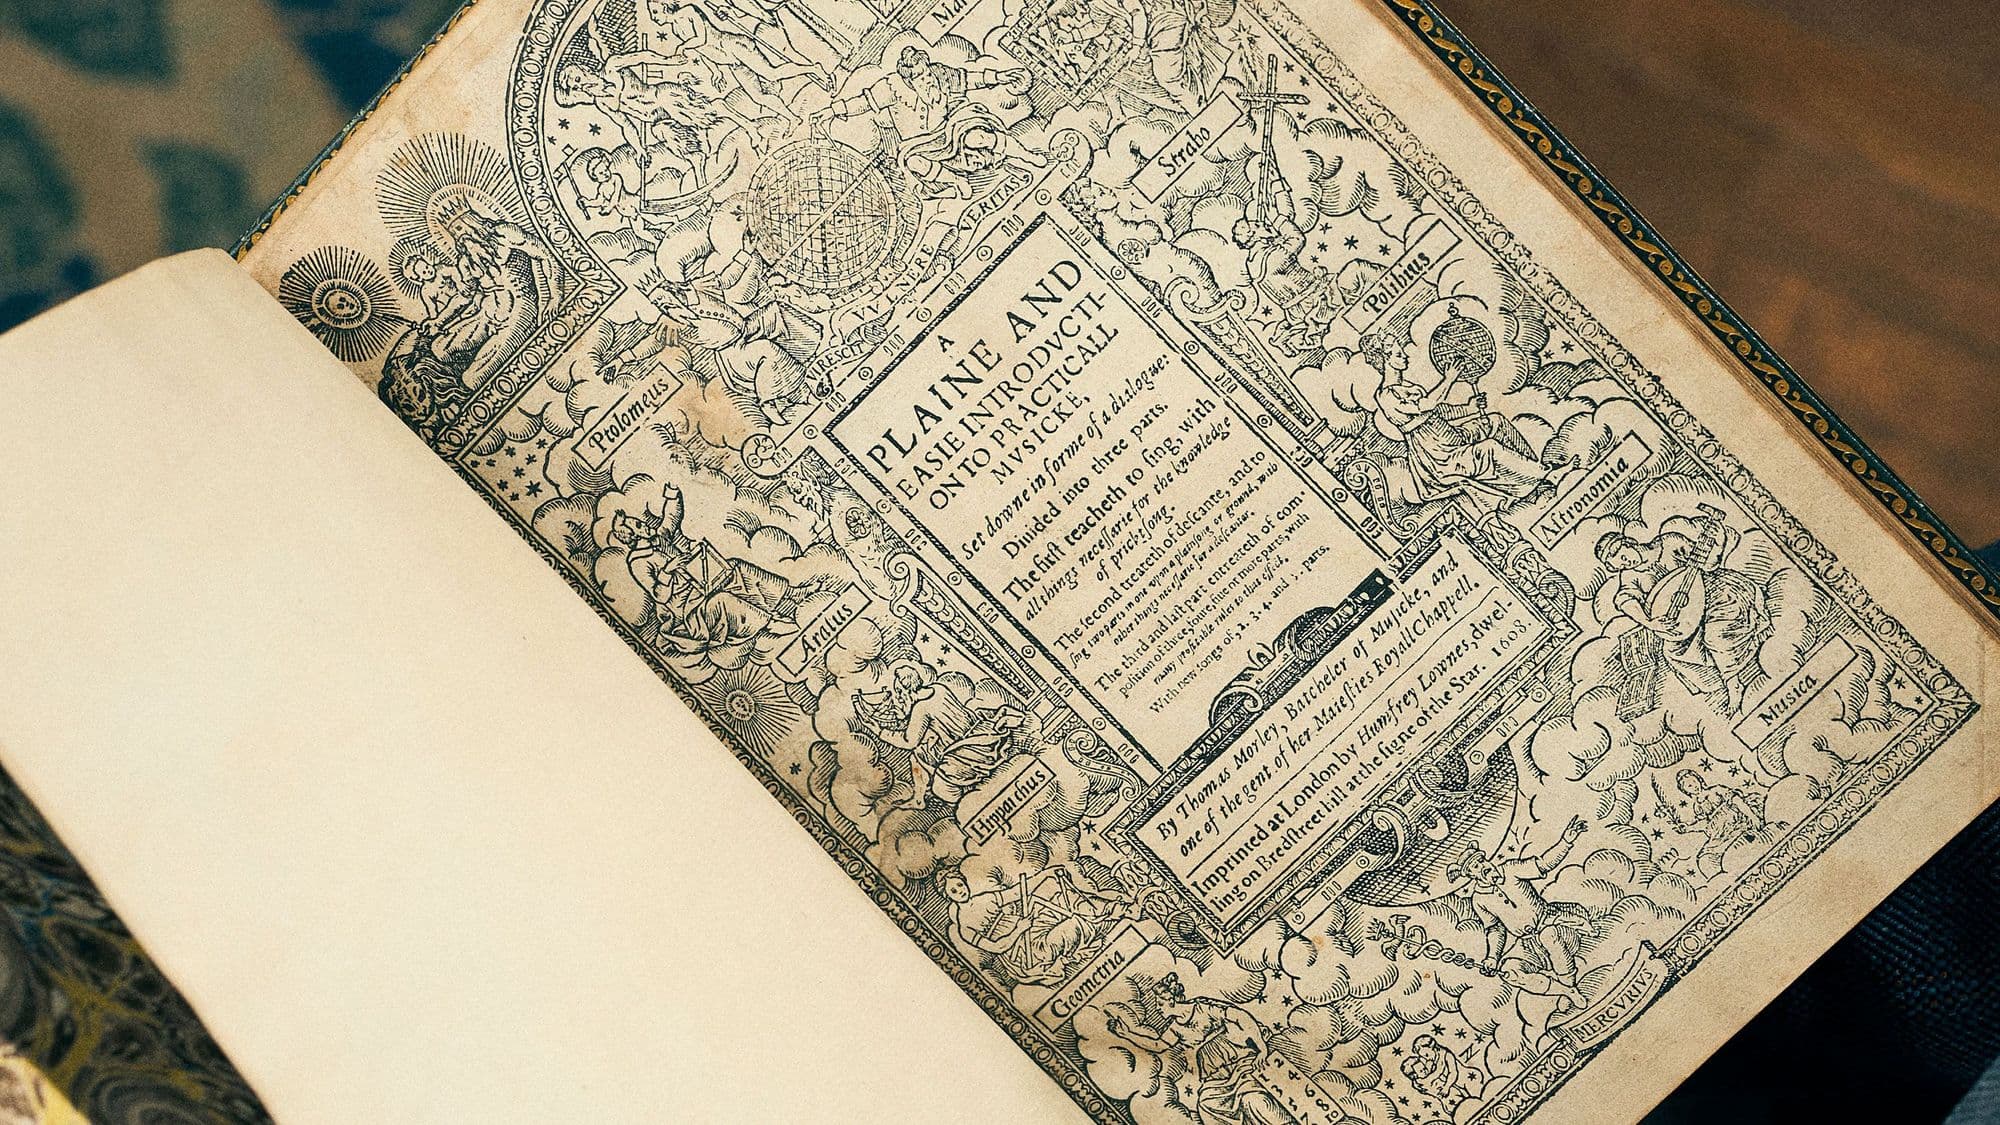 Mar
Strabo
Polibius
Astronomia
Musica
Ptolomeus
Aratus
Hipparchus
Geometria
MERCVRIVS
VIRESCIT VVLNERE VERITAS
A
PLAINE AND
EASIE INTRODVCTI-
ON TO PRACTICALL
MVSICKE,
Set downe in forme of a dialogue:
Diuided into three parts.
The first teacheth to sing, with
all things necessarie for the knowledge
of pricktsong.
The second treateth of descante, and to
sing two parts in one vpon a plainsong or ground, with
other things necessarie for a descanter.
The third and last part entreateth of com-
position of three, foure, fiue or more parts, with
many profitable rules to that effect.
With new songs of, 2. 3. 4. and 5. parts.
By Thomas Morley, Batcheler of Musicke, and
one of the gent. of her Maiesties Royall Chappell.
Imprinted at London by Humfrey Lownes, dwel-
ling on Bredstreet hill at the signe of the Star. 1608.
1 2 4
3 3 6
5 8